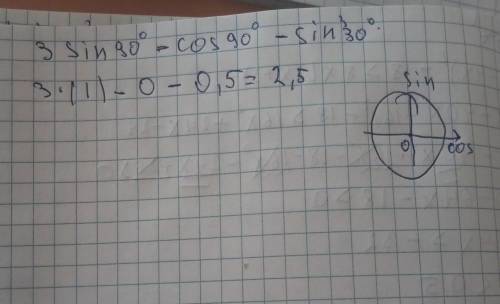 3 sin 90° - cos 90° - sin 30°.
3 · (1) - 0 - 0,5 = 2,5
sin
0
cos